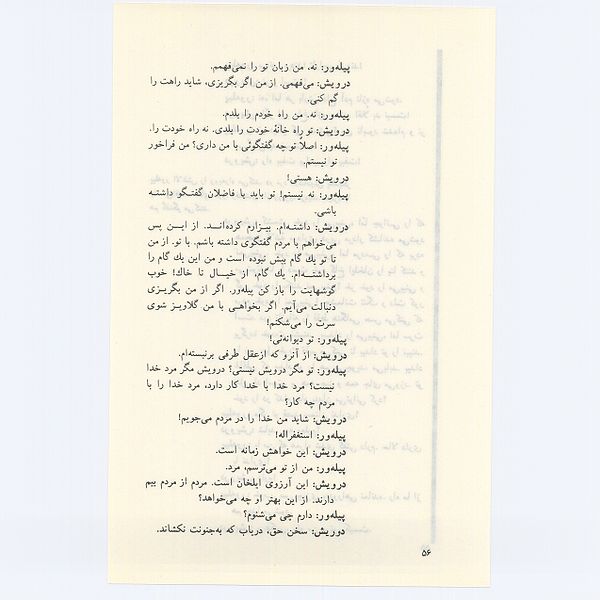 پیله‌ور: نه. من زبان تو را نمی‌فهمم.
درویش: می‌فهمی. از من اگر بگریزی، شاید راهت را
گم کنی.
پیله‌ور: نه. من راه خودم را بلدم.
درویش: تو راه خانهٔ خودت را بلدی. نه راه خودت را.
پیله‌ور: اصلاً تو چه گفتگوئی با من داری؟ من فراخور
تو نیستم.
درویش: هستی!
پیله‌ور: نه نیستم! تو باید با فاضلان گفتگو داشته
باشی.
درویش: داشته‌ام. بیزارم کرده‌اند. از این پس
می‌خواهم با مردم گفتگوی داشته باشم. با تو. از من
تا تو یك گام بیش نبوده است و من این یك گام را
برداشته‌ام. یك گام، از خیال تا خاك! خوب
گوشهایت را باز کن پیله‌ور. اگر از من بگریزی
دنبالت می‌آیم. اگر بخواهی با من گلاویز شوی
سرت را می‌شکنم!
پیله‌ور: تو دیوانه‌ئی!
درویش: از آنرو که ازعقل طرفی برنبسته‌ام.
پیله‌ور: تو مگر درویش نیستی؟ درویش مگر مرد خدا
نیست؟ مرد خدا با خدا کار دارد، مرد خدا را با
مردم چه کار؟
درویش: شاید من خدا را در مردم می‌جویم!
پیله‌ور: استغفراله!
درویش: این خواهش زمانه است.
پیله‌ور: من از تو می‌ترسم، مرد.
درویش: این آرزوی ایلخان است. مردم از مردم بیم
دارند. از این بهتر او چه می‌خواهد؟
پیله‌ور: دارم چی می‌شنوم؟
دوریش: سخن حق، درباب که به‌جنونت نکشاند.
۵۶